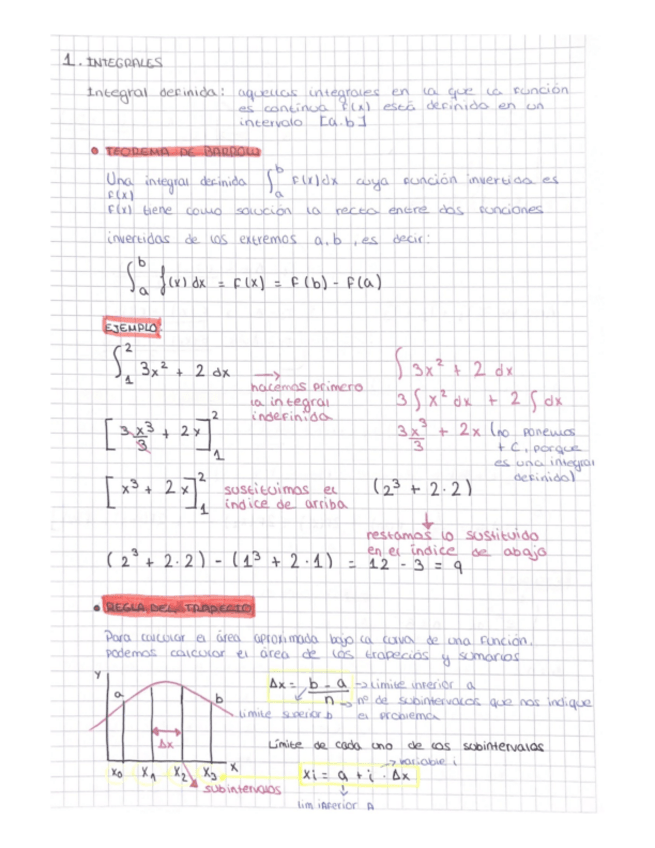 1. INTEGRALES
Integral definida: aquellas integrales en la que la función
es continua f(x) está definido en un
intervalo [a.b]
• TEOREMA DE BARROW
Una integral definida ∫ₐᵇ F(x)dx cuya función invertida es
F(x)
F(x) tiene como solución la recta entre dos funciones
invertidas de los extremos a, b, es decir:
∫ₐᵇ f(x) dx = F(x) = F(b) - F(a)
EJEMPLO:
∫₁² 3x² + 2 dx → hacemos primero
la integral
indefinida
∫ 3x² + 2 dx
3 ∫ x² dx + 2 ∫ dx
3x³/3 + 2x (no ponemos
+ C, porque
es una integral
definida)
[3x³/3 + 2x]₁²
[x³ + 2x]₁² sustituimos el
índice de arriba
(2³ + 2·2)
↓
restamos lo sustituido
en el índice de abajo
(2³ + 2·2) - (1³ + 2·1) = 12 - 3 = 9
• REGLA DEL TRAPECIO
Para calcular el área aproximada bajo la curva de una función,
podemos calcular el área de los trapecios y sumarlos
Y
a
b
Δx
x₀ x₁ x₂ x₃ x
subintervalos
Δx = (b - a)/n → Límite inferior a
→ nº de subintervalos que nos indique
el problema
límite superior b
Límite de cada uno de los subintervalos
→ variable i
xi = a + i · Δx
↓
lim inferior A